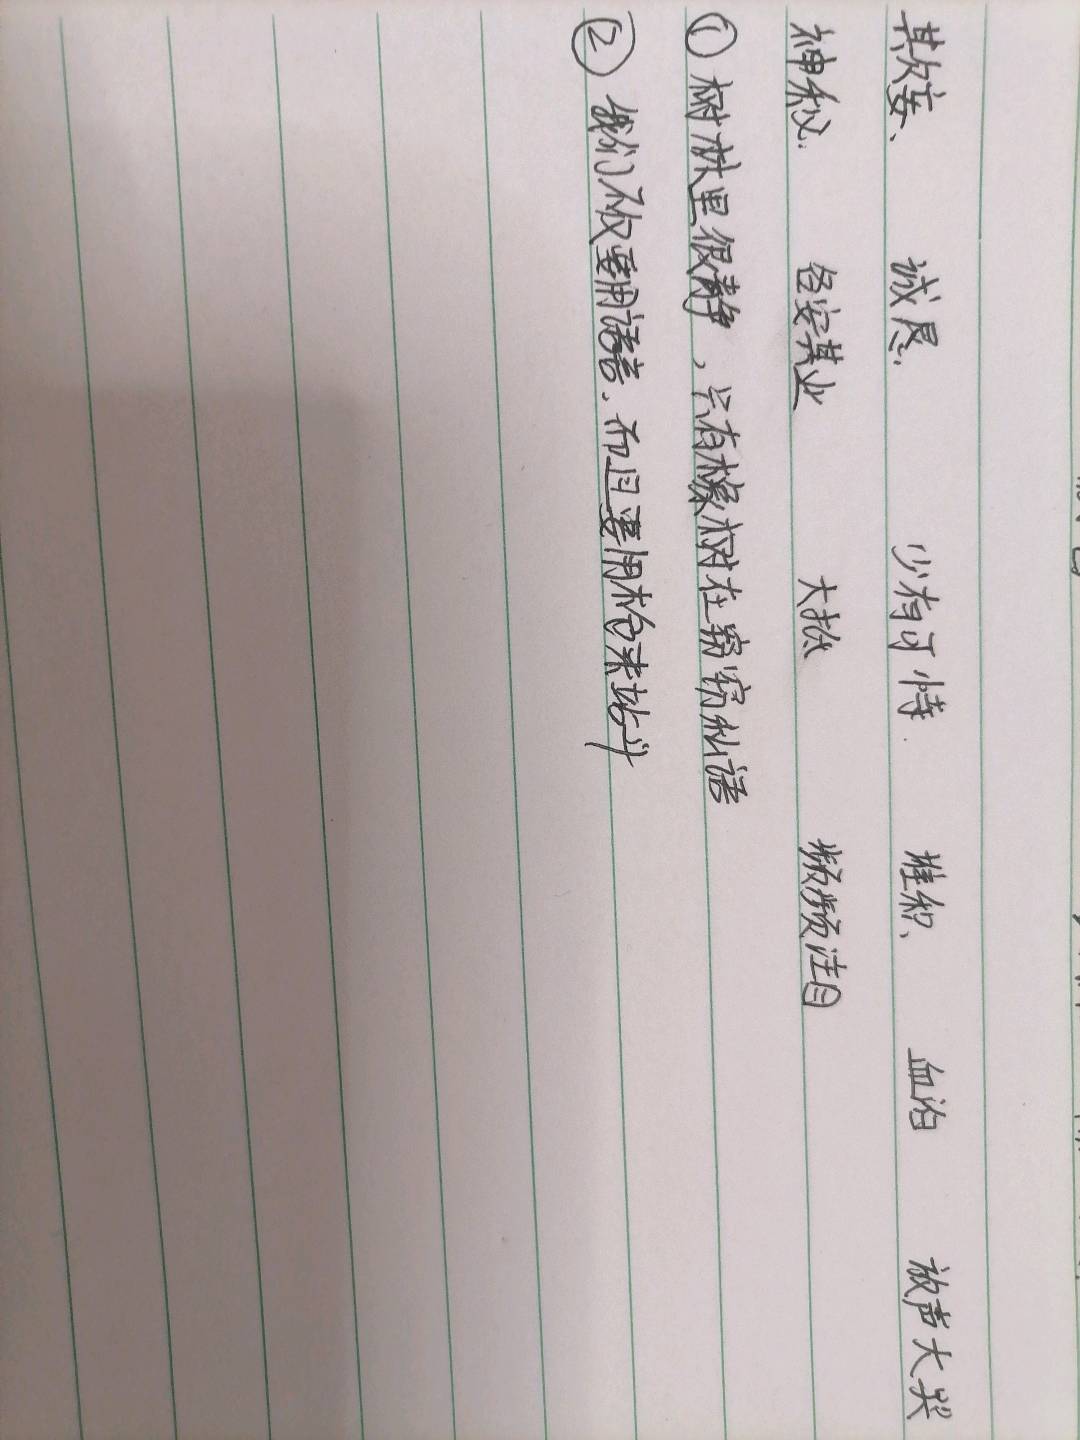 诚恳. 少有可恃. 堆积、 血泊 放声大哭
神秘. 各安其业 大抵 频频注目
① 树林里很静，只有橡树在窃窃私语
② 我们不仅要用语言.而且要用枪来战斗